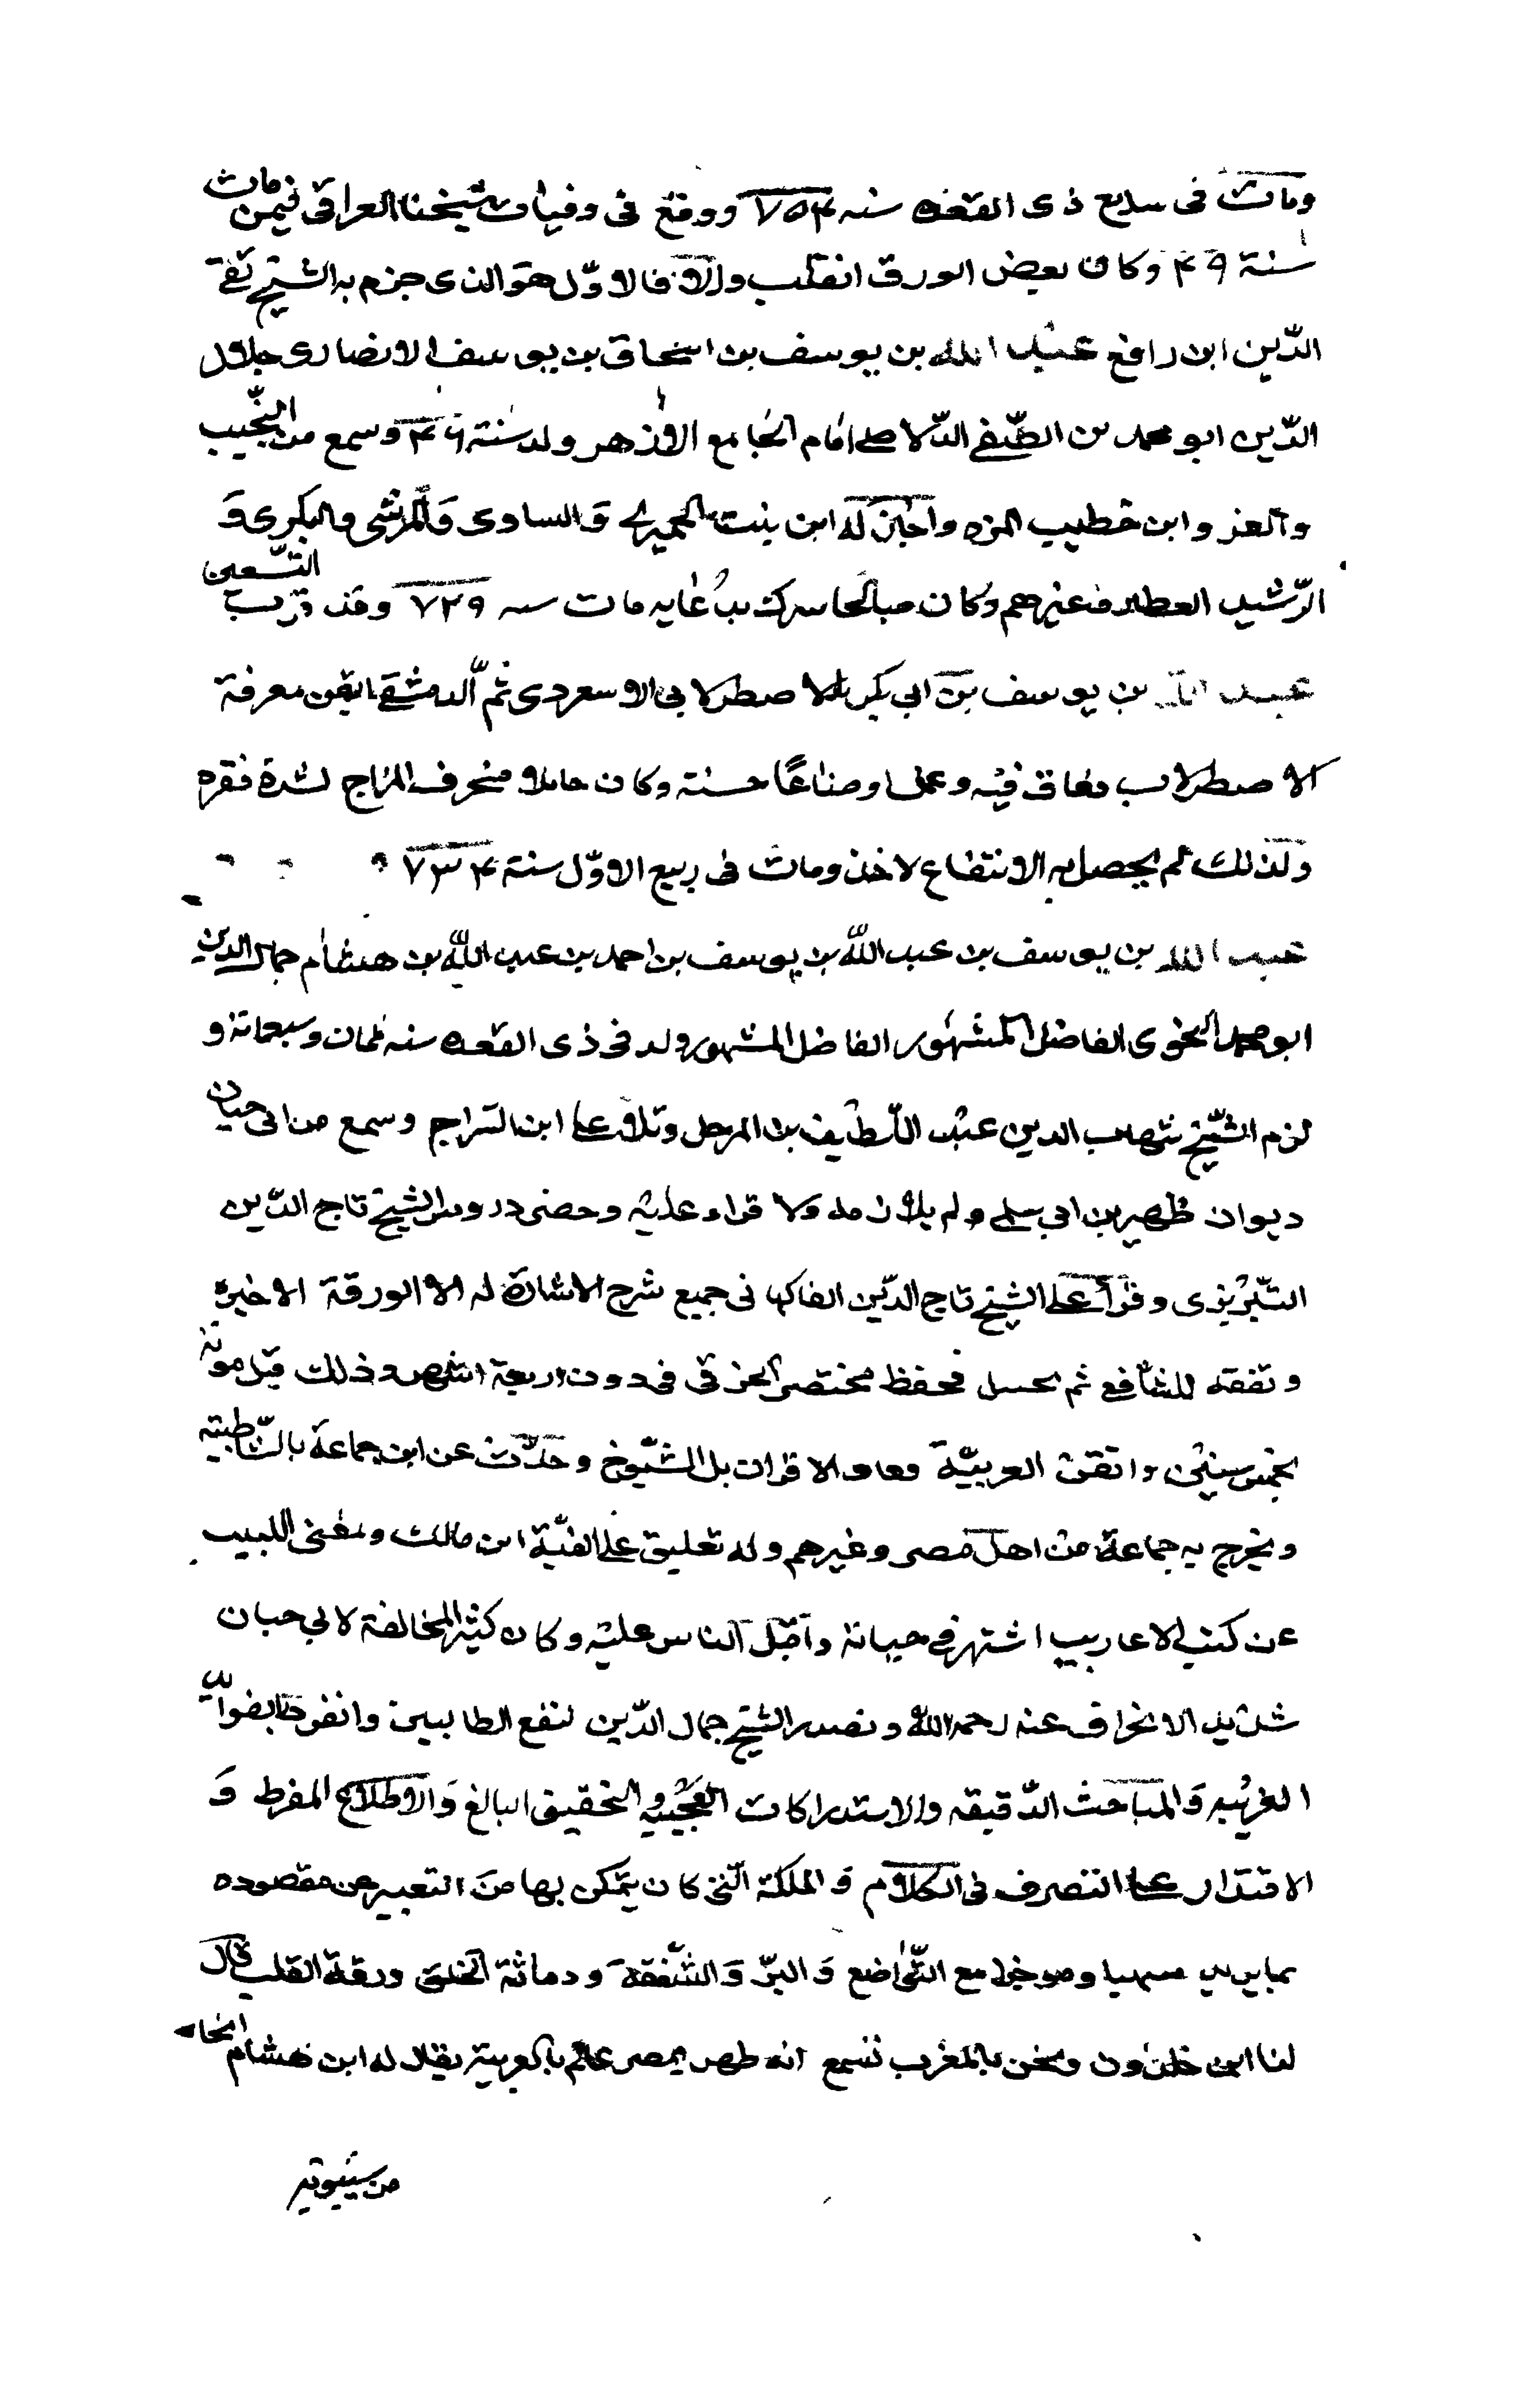 ومات فى سابع ذى القعده سنه ٧٥٤ ووقع فى وفيات شيخنا العراقى فيمن مات
سنة ٤٩ وكان بعض الورق انقلب والا فالاوّل هو الذى جزم به الشيخ تقى
الدّين ابن رافع عبد الله بن يوسف بن اسحاق بن يوسف الانصارى جلال
الدّين ابو محمد بن الصّفى الدّلاصى امام الجامع الازهر ولد سنة ٦٤٩ وسمع من النجّيب
والعز وابن خطيب المزه واجاز له ابن بنت الحميزى والساوى والمرشى والبكرى و
الرّشيد العطار وغيرهم وكان صالحا يتبرك به غايه مات سنه ٧٢٩ وقد قرب التّسعين
عبد الله بن يوسف بن ابى بكر الاصطرلابى الاسعردى ثم الدمشقى اتقن معرفة
الاصطرلاب وفاق فيه وعمل اوضاعًا حسنة وكان خاملا منحرف المزاج لشدة فقره
ولذلك لم يحصل به الانتفاع لاخذ ومات فى ربيع الاوّل سنة ٧٣٤
عبد الله بن يوسف بن عبد اللّه بن يوسف بن احمد بن عبد اللّه بن هشام جمال الدين
ابو محمد النحوى الفاضل المشهور الفاضل المشهور ولد فى ذى القعده سنه ثمان وسبعمائة و
لزم الشّيخ شهاب الدين عبد اللّطيف بن المرحل وتلا على ابن السّراج وسمع من ابى حيان
ديوان ظهير بن ابى سلمى ولم يلازمه ولا قراء عليه وحضر دروس الشيخ تاج الدّين
التّبريزى وقرأ على الشيخ تاج الدّين الفاكهانى جميع شرح الاشارة له الا الورقة الاخيره
وتفقه للشافعى ثم تحنبل فحفظ مختصر الخرقى فى دون اربعة اشهر وذلك قبل موته
بخمس سنين واتقن العربيّة ففاق الاقران بل الشّيوخ وحدّث عن ابن جماعة بالشّاطبيّه
وتخرج به جماعة من اهل مصر وغيرهم وله تعليق على الفيّة ابن مالك ومغنى اللبيب
عن كتب الاعاريب اشتهر فى حياته واقبل الناس عليه وكان كثير المخالفة لابى حيان
شديد الانحراف عنه رحمه اللّه وتصدر الشيخ جمال الدّين لنفع الطالبين وانفرد بالفوائد
الغريبه والمباحث الدّقيقه والاستدراكات العجيبه والتحقيق البالغ والاطلاع المفرط و
الاقتدار على التصرف فى الكلام والملكة الّتى كان يتمكن بها من التعبير عن مقصوده
بما يريد مسهبا وموجزا مع التّواضع والبرّ والشّفقة ودماثة الخلق ورقة القلب قال
لنا ابن خلدون ونحن بالمغرب نسمع انه ظهر بمصر عالم بالعربية يقال له ابن هشام انحا
من سيبويه